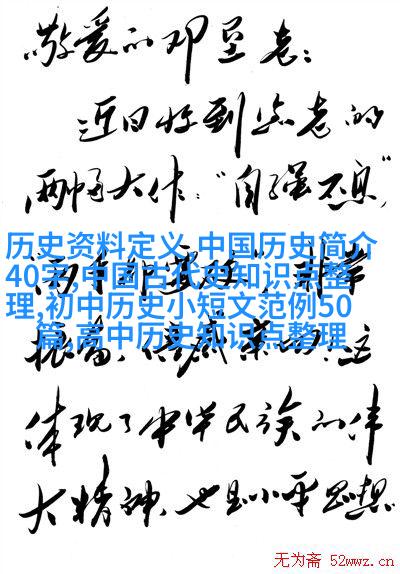 敬爱的邓垦老：
近日收到您老的
两幅大作：“自强不息”
历史资料定义,中国历史简介
40字,中国古代史知识点整
理,初中历史小短文范例50
篇,高中历史知识点整理
体现了中华民族的伟
大精神，也是小平思想
无为斋 52wwz.cn